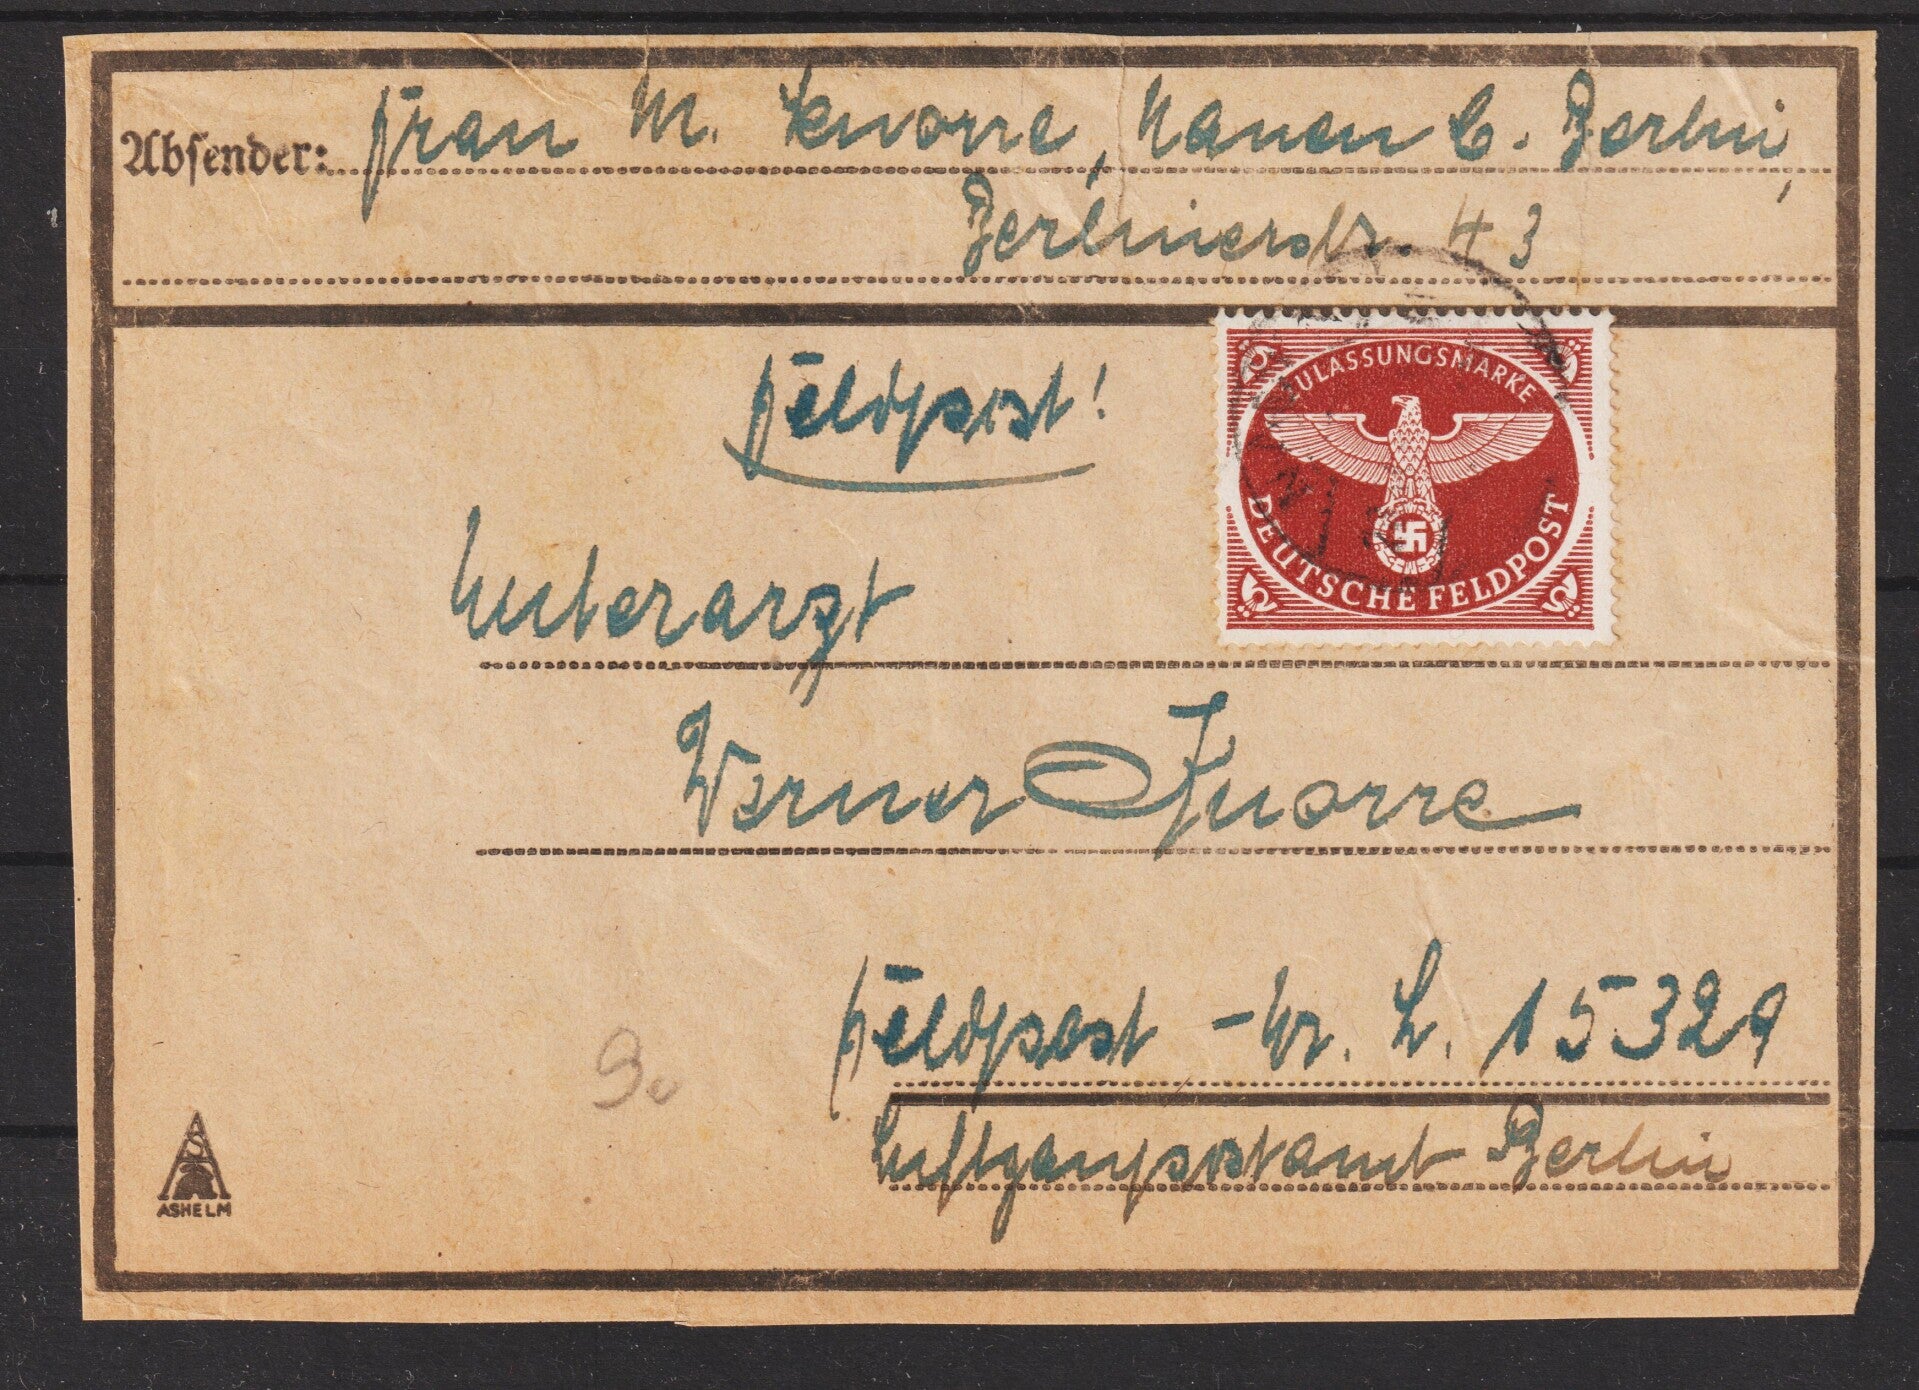 Absender: Frau M. Knorre, Nauen b. Berlin,
Berlinerstr. 43
Feldpost!
ZULASSUNGSMARKE
DEUTSCHE FELDPOST
Unterarzt
Werner Knorre
Feldpost-Nr. L. 15329
Luftgaupostamt Berlin
ASHELM